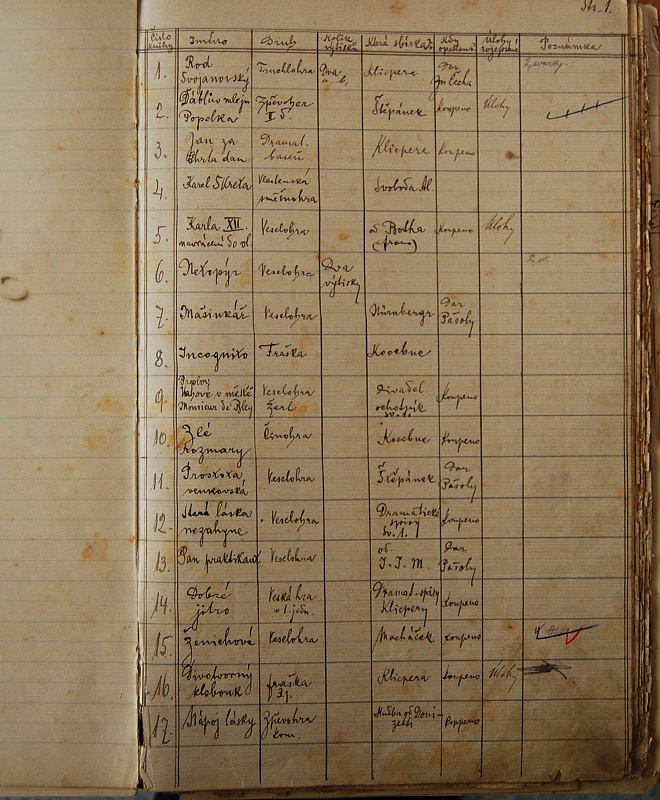 Str. 1.
Číslo knihy Jméno Druh Kolik výtisků Která sbírka Kdy opatřeno Úlohy rozepsané Poznámka
1. Rod Svojanovský Truchlohra Dva a, b, Klicpera Dar Čecha
2. Ďáblův mlejn Popelka Zpěvoher II d. Štěpánek Koupeno Úlohy
3. Jan za chrta dán Dramat. báseň Klicpera Koupeno
4. Karel Škreta Vlastenská směsnohra Svoboda Al.
5. Karla XII. navrácení do vl. Veselohra od Botha (franc) Koupeno Úlohy
6. Netopýr Veselohra Dva výtisky
7. Mašinkář Veselohra Nürnbergr Dar Pášoly
8. Incognito Fraška Kocebue
9. v městě Monsieur de Veselohra Žert Divadel. ochotník Koupeno
10. Zlé rozmary Činohra Kocebue Koupeno
11. Prostota venkovská Veselohra Štěpánek Dar Pášoly
12. Stará láska nezahyne Veselohra Dramatické spisy sv. 1. Koupeno
13. Pan praktikant Veselohra od J. J. M. Dar Pášoly
14. Dobré jitro Veská hra v 1 jedn. Dramat. spisy Klicpery Koupeno
15. Ženichové Veselohra Macháček Koupeno
16. Divotvorný klobouk fraška 3 j. Klicpera Koupeno Úlohy
17. Nápoj lásky Zpěvohra kom. Hudba od Donizetti Koupeno